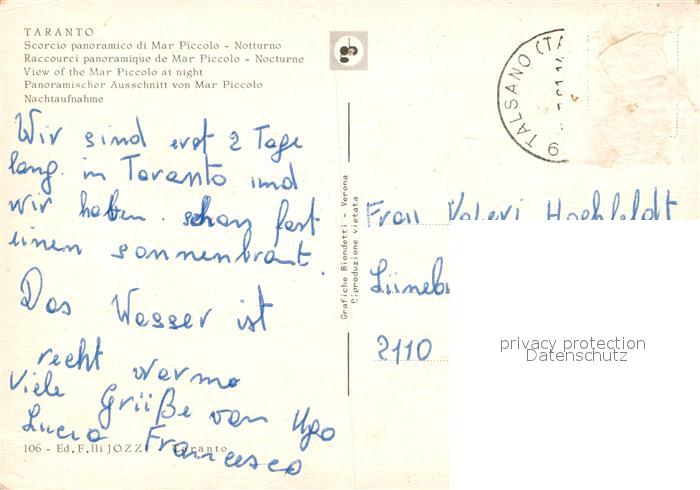 TARANTO
Scorcio panoramico di Mar Piccolo - Notturno
Raccourci panoramique de Mar Piccolo - Nocturne
View of the Mar Piccolo at night
Panoramischer Ausschnitt von Mar Piccolo
Nachtaufnahme
Wir sind erst 2 Tage
lang in Taranto und
wir haben schon fast
einen sonnenbrant.
Das Wasser ist
recht warme
Viele Grüße von Ugo
Lucia Francesco
106 - Ed. F.lli JOZZ Taranto
Grafiche Biondetti - Verona
Riproduzione vietata
9 TALSANO (TA
Frau Valeri
Lüneb
2110
privacy protection
Datenschutz